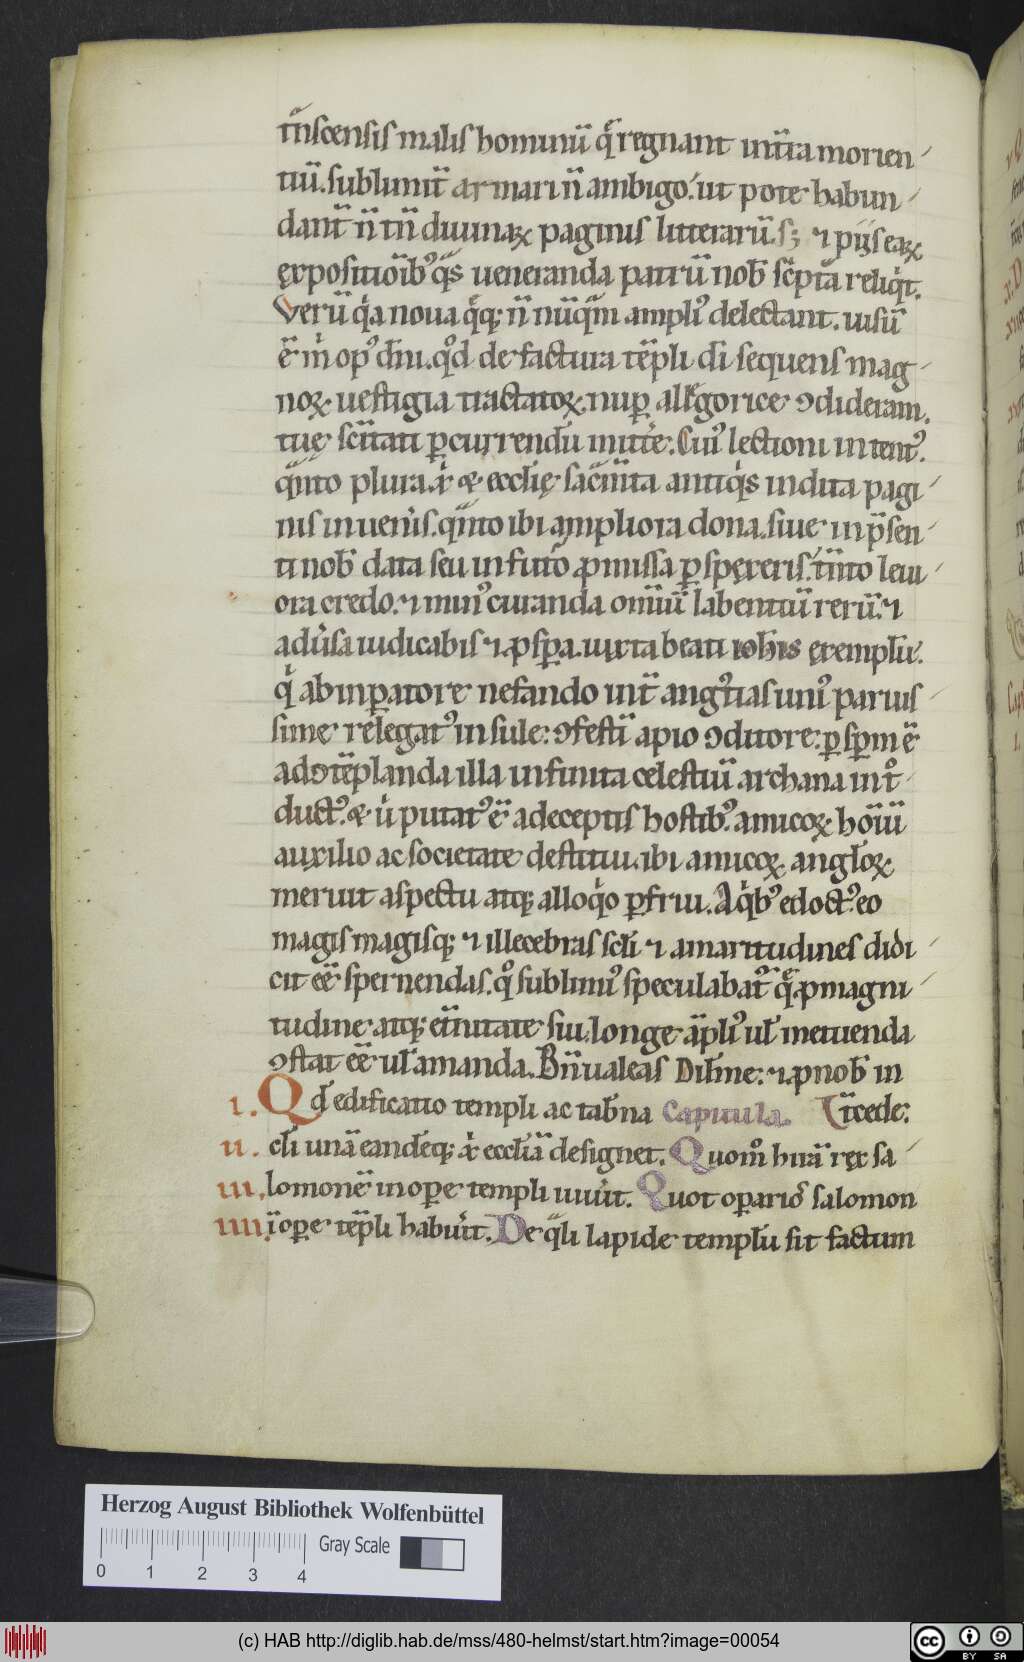 t̄nscensis malis hominū q̄ regnant int̄ia morien
tiū. sublimit̄ armari n̄ ambigo. ut pote habun
dant̄ n̄ tn̄ diuinaꝝ paginis litterarū. sꝫ ⁊ pijs eaꝝ
ęxpositiōibꝰ q̄s ueneranda patrū nob̄ sc̄ptā reliqͥt.
Verū qͥa noua qͥqꝫ n̄ nūq̄m ampliꝰ delectant. uisū
ē m̄ opꝰ dn̄i. qd̄ de factura tēpli di̅ sequens mag
noꝝ uestigia tractatoꝝ. nuꝑ allegorice ꝯdideram.
tuę scīitati ꝑcurrendū mitte. Cuiꝰ lectioni intentꝰ.
q̄nto plura xp̄i & eccl̄ię sac̄mta antiqͥs indita pagi
nis inuenis. q̄nto ibi ampliora dona. siue in p̄sen
ti nob̄ data seu in futō ꝓmissa ꝑspęxeris. t̄nto leui
ora credo. ⁊ minꝰ curanda om̄iū labentiū rerū. ⁊
adu̅sa iudicabis ⁊ ꝓspa. iuxta beati ioh̄is ęxemplū.
qͥ ab inꝑatore nefando int̄ angꝰtias uniꝰ paruis
sime relegatꝰ insule: ꝯfestī a pio ꝯditore: ꝑ sp̄m ē
ad ꝯtēplanda illa infinita celestiū archana int̊
ductꝰ. & ū putatꝰ ē a deceptis hostibꝰ. amicoꝝ hōiū
auxilio ac societate destitui. ibi amicoꝝ angl̄oꝝ
meruit aspectu atqꝫ alloqͥo ꝑfrui. A qͥbꝰ edoctꝰ eo
magis magisqꝫ ⁊ illecebras scl̄i ⁊ amaritudines didi
cit eē spernendas. q̊ sublimiꝰ speculabatꝰ q̄ ꝓ magni
tudine atqꝫ et̄nitate sui. longe āpliꝰ ul̄ metuenda
ꝯstat eē ul̄ amanda. Bn̄ ualeas Dil̄me: ⁊ ꝓ nob̄ in
i. Qd̄ edificatio templi ac tab̄na Capitula. t̄cede:
ii. cl̄i unā eandēqꝫ xp̄i eccl̄iā designet. Quom̊ hirā rex sa
iii. lomonē in oꝑe templi iuuit. Quot oꝑarios salomon
iiii. ī oꝑe tēpli habuit. De q̄li lapide templū sit factum
Herzog August Bibliothek Wolfenbüttel
Gray Scale
0 1 2 3 4
(c) HAB http://diglib.hab.de/mss/480-helmst/start.htm?image=00054
cc BY SA